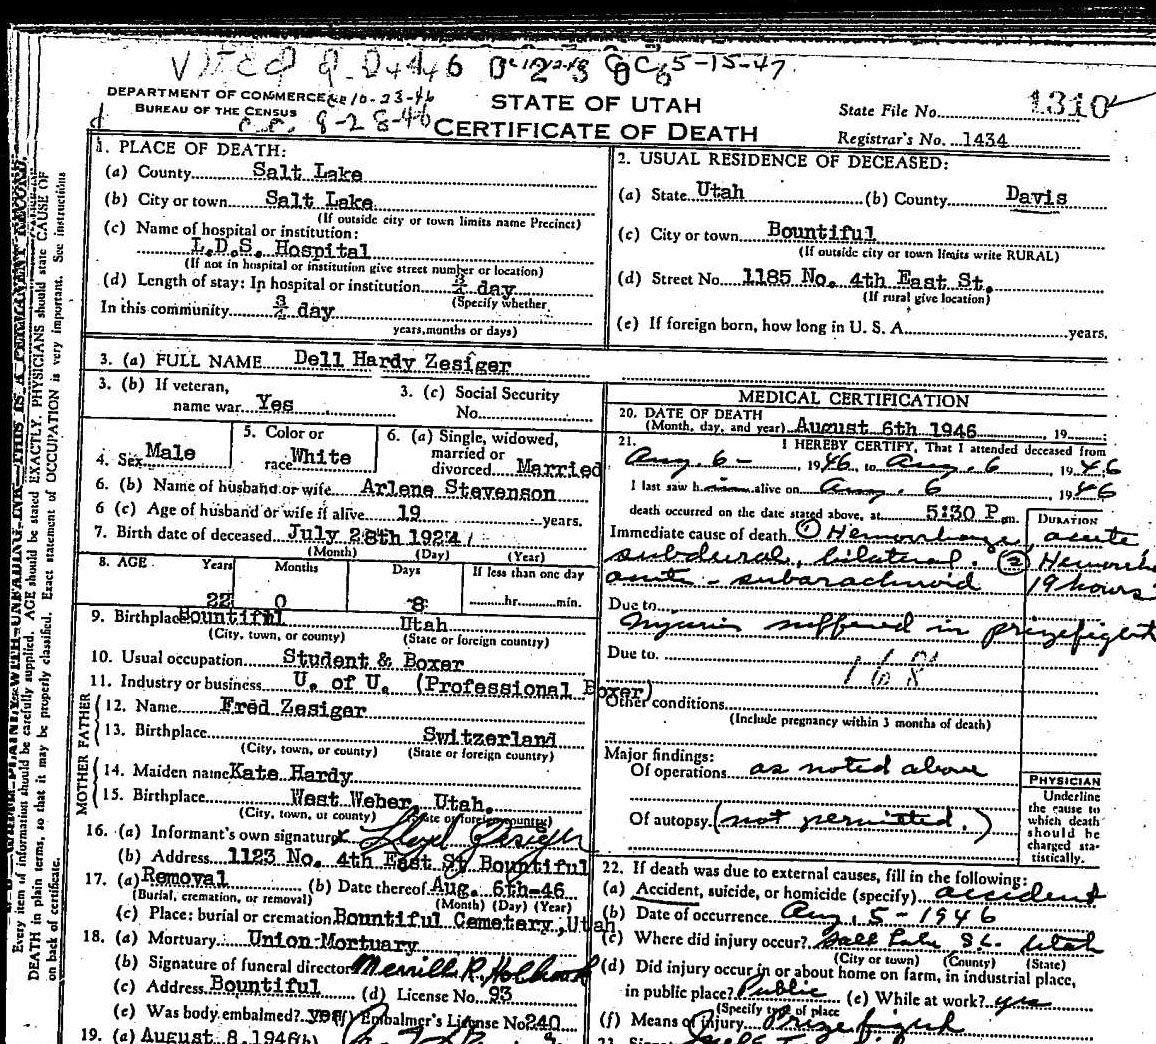 5-15-47
DEPARTMENT OF COMMERCE 10-23-46
BUREAU OF THE CENSUS
STATE OF UTAH
CERTIFICATE OF DEATH
State File No. 1310
Registrar's No. 1434
1. PLACE OF DEATH:
(a) County Salt Lake
(b) City or town Salt Lake
(If outside city or town limits name Precinct)
(c) Name of hospital or institution:
L.D.S. Hospital
(If not in hospital or institution give street number or location)
(d) Length of stay: In hospital or institution day
(Specify whether
In this community 3/4 day
years, months or days)
2. USUAL RESIDENCE OF DECEASED:
(a) State Utah (b) County Davis
(c) City or town Bountiful
(If outside city or town limits write RURAL)
(d) Street No. 1185 No. 4th East St.
(If rural give location)
(e) If foreign born, how long in U. S. A. years.
3. (a) FULL NAME Dell Hardy Zesiger
3. (b) If veteran,
name war Yes
3. (c) Social Security
No.
4. Sex Male
5. Color or
race White
6. (a) Single, widowed,
married or
divorced Married
6. (b) Name of husband or wife Arlene Stevenson
6 (c) Age of husband or wife if alive 19 years.
7. Birth date of deceased July 28th 1924
(Month) (Day) (Year)
8. AGE Years Months Days If less than one day
22 0 8 hr. min.
9. Birthplace Bountiful Utah
(City, town, or county) (State or foreign country)
10. Usual occupation Student & Boxer
11. Industry or business U. of U. (Professional Boxer)
FATHER
12. Name Fred Zesiger
13. Birthplace Switzerland
(City, town, or county) (State or foreign country)
MOTHER
14. Maiden name Kate Hardy
15. Birthplace West Weber, Utah.
(City, town, or county) (State or foreign country)
16. (a) Informant's own signature x Lloyd Zesiger
(b) Address 1123 No. 4th East St Bountiful
17. (a) Removal (b) Date thereof Aug. 6th-46
(Burial, cremation, or removal) (Month) (Day) (Year)
(c) Place: burial or cremation Bountiful Cemetery, Utah
18. (a) Mortuary Union Mortuary
(b) Signature of funeral director Merrill R. Holbrook
(c) Address Bountiful (d) License No. 93
(e) Was body embalmed? yes (f) Embalmer's License No. 240
19. (a) August 8, 1946 (b)
MEDICAL CERTIFICATION
20. DATE OF DEATH
(Month, day, and year) August 6th 1946 , 19
21. I HEREBY CERTIFY, That I attended deceased from
Aug. 6 - , 1946, to Aug. 6 , 1946
I last saw him alive on Aug. 6 , 1946
death occurred on the date stated above, at 5:30 P. m.
DURATION
Immediate cause of death ① Hemorrhage, acute
subdural, bilateral. ② Hemorrh
acute - subarachnoid 19 hours
Due to
Injuries suffered in prizefight
Due to 168
Other conditions
(Include pregnancy within 3 months of death)
Major findings:
Of operations as noted above
Of autopsy (not permitted.)
PHYSICIAN
Underline
the cause to
which death
should be
charged sta-
tistically.
22. If death was due to external causes, fill in the following:
(a) Accident, suicide, or homicide (specify) accident
(b) Date of occurrence Aug. 5 - 1946
(c) Where did injury occur? Salt Lake SL. Utah
(City or town) (County) (State)
(d) Did injury occur in or about home on farm, in industrial place,
in public place? Public (e) While at work? yes
(Specify type of place
(f) Means of injury Prize fight